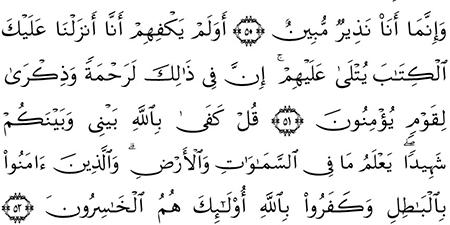 وَإِنَّمَآ أَنَا۠ نَذِيرٌ مُّبِينٌ ۝٥٠ أَوَلَمْ يَكْفِهِمْ أَنَّآ أَنزَلْنَا عَلَيْكَ
ٱلْكِتَٰبَ يُتْلَىٰ عَلَيْهِمْ ۚ إِنَّ فِى ذَٰلِكَ لَرَحْمَةً وَذِكْرَىٰ
لِقَوْمٍ يُؤْمِنُونَ ۝٥١ قُلْ كَفَىٰ بِٱللَّهِ بَيْنِى وَبَيْنَكُمْ
شَهِيدًا ۖ يَعْلَمُ مَا فِى ٱلسَّمَٰوَٰتِ وَٱلْأَرْضِ ۗ وَٱلَّذِينَ ءَامَنُوا۟
بِٱلْبَٰطِلِ وَكَفَرُوا۟ بِٱللَّهِ أُو۟لَٰٓئِكَ هُمُ ٱلْخَٰسِرُونَ ۝٥٢